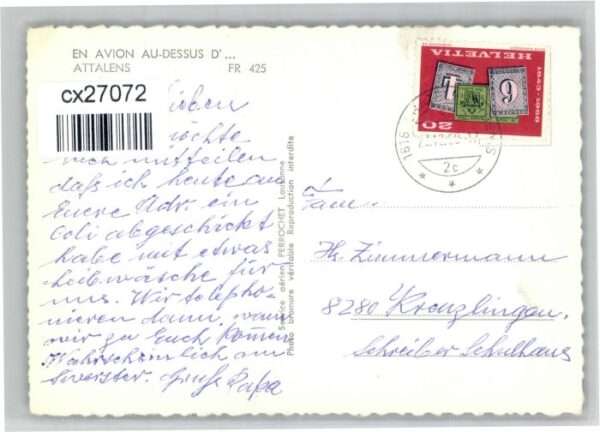 EN AVION AU-DESSUS D'...
ATTALENS FR 425
cx27072
ieben
öchte
mitteilen
daß ich heute an
Euere Adr. ein
Coli abgeschickt
habe mit etwas
Leibwäsche für
uns. Wir telepho-
nieren dann, wann
wir zu Euch kommen
Wahrscheinlich am
Gruß Papa
Service aérien PERROCHET Lausanne
Photo véritable Reproduction interdite
HELVETIA
1843-1968
20
1616
2c
Fam.
Hs. Zimmermann
8280 Kreuzlingen
Schreiber Schulhaus